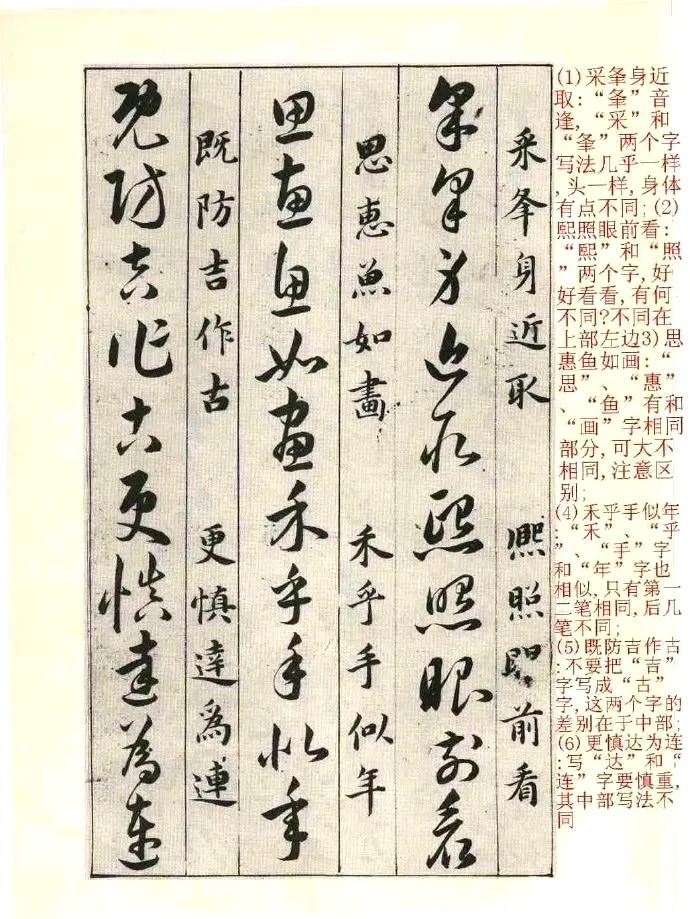 采夆身近取 熙照眼前看
采夆身近取熙照眼前看
思惠魚如畫 禾乎手似年
思惠魚如畫禾乎手似年
既防吉作古 更慎達爲連
既防吉作古更慎達為連
(1)采夆身近
取:“夆”音
逢,“采”和
“夆”两个字
写法几乎一样
,头一样,身体
有点不同;(2)
熙照眼前看:
“熙”和“照
”两个字,好
好看看,有何
不同?不同在
上部左边3)思
惠鱼如画:“
思”、“惠”
、“鱼”有和
“画”字相同
部分,可大不
相同,注意区
别;
(4)禾乎手似年
:“禾”、“乎
”、“手”字
和“年”字也
相似,只有第一
二笔相同,后几
笔不同;
(5)既防吉作古
:不要把“吉”
字写成“古”
字,这两个字的
差别在于中部;
(6)更慎达为连
:写“达”和“
连”字要慎重,
其中部写法不
同